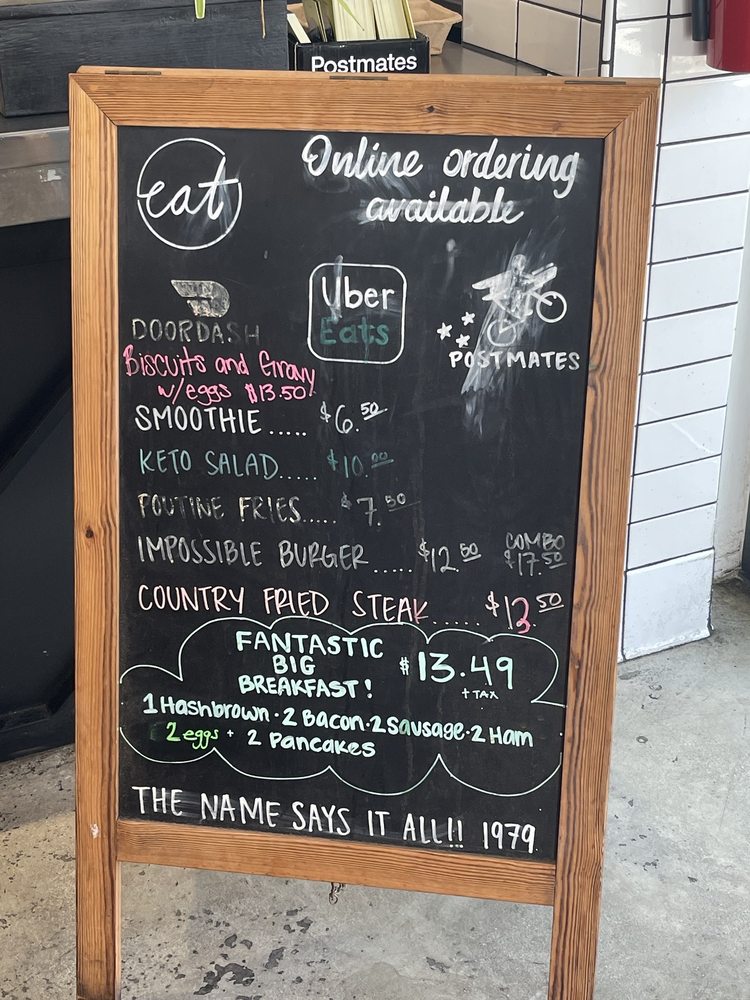 Postmates
eat
Online ordering
available
DOORDASH
Uber
Eats
POSTMATES
Biscuits and Gravy
w/eggs $13.50
SMOOTHIE..... $6.50
KETO SALAD..... $10.00
POUTINE FRIES..... $7.50
IMPOSSIBLE BURGER..... $12.50 COMBO $17.50
COUNTRY FRIED STEAK..... $13.50
FANTASTIC
BIG
BREAKFAST!
$13.49
+ TAX
1 Hashbrown · 2 Bacon · 2 Sausage · 2 Ham
2 eggs + 2 Pancakes
THE NAME SAYS IT ALL!! 1979